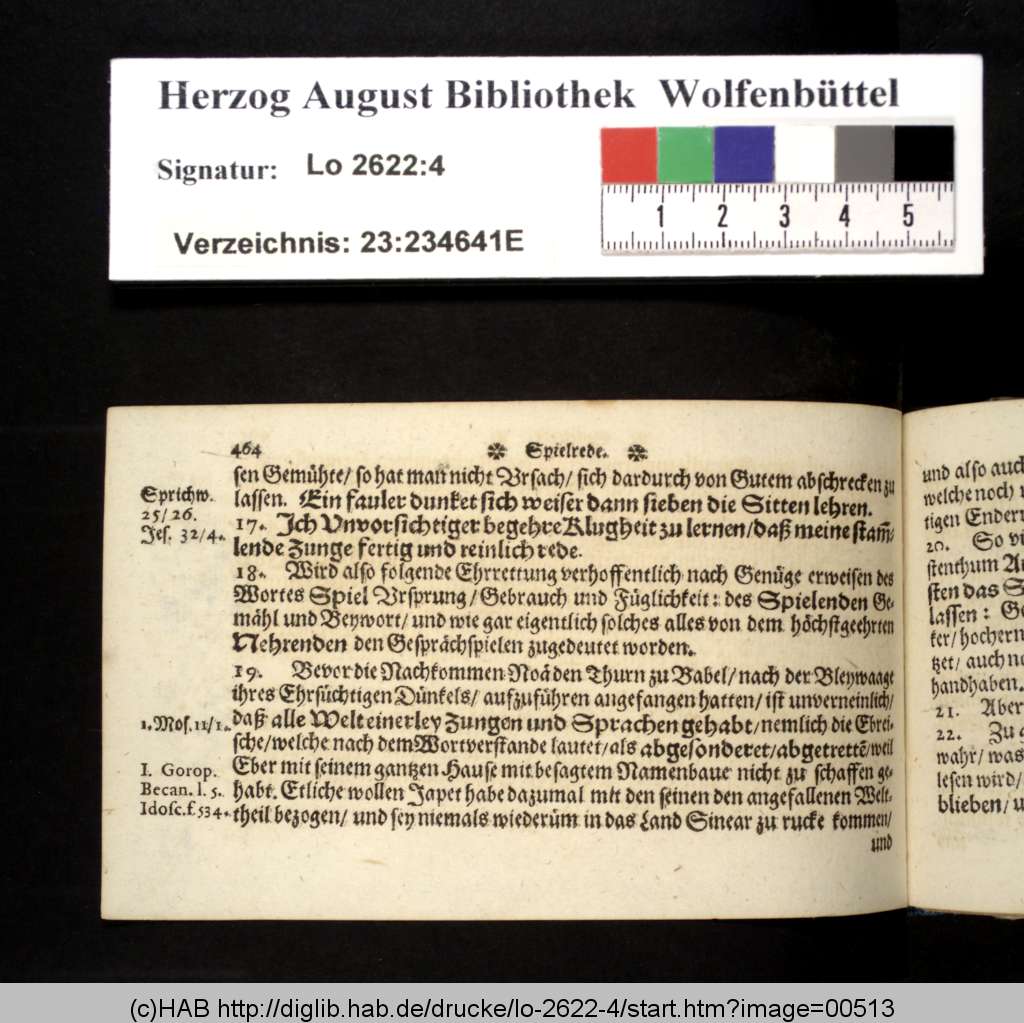 Herzog August Bibliothek Wolfenbüttel
Signatur: Lo 2622:4
Verzeichnis: 23:234641E
1 2 3 4 5
464 Spielrede.
sen Gemühte/ so hat man nicht Vrsach/ sich dardurch von Gutem abschrecken zu
Sprichw. lassen. Ein fauler dunket sich weiser dann sieben die Sitten lehren.
25/26.
17. Ich Vnvorsichtiger begehre Klugheit zu lernen/ daß meine stam̃-
Jes. 32/4. lende Zunge fertig und reinlich rede.
18. Wird also folgende Ehrrettung verhoffentlich nach Genüge erweisen des
Wortes Spiel Vrsprung/ Gebrauch und Füglichkeit: des Spielenden Ge-
mähl und Beywort/ und wie gar eigentlich solches alles von dem höchstgeehrten
Nehrenden den Gesprächspielen zugedeutet worden.
19. Bevor die Nachkommen Noä den Thurn zu Babel/ nach der Bleywaage
ihres Ehrsüchtigen Dünkels/ aufzuführen angefangen hatten/ ist unverneinlich/
1. Mos. 11/1. daß alle Welt einerley Zungen und Sprachen gehabt/ nemlich die Ebrei-
sche/ welche nach dem Wortverstande lautet/ als abgesonderet/ abgetrettẽ/ weil
I. Gorop. Eber mit seinem gantzen Hause mit besagtem Namenbaue nicht zu schaffen ge-
Becan. l. 5. habt. Etliche wollen Japet habe dazumal mit den seinen den angefallenen Welt-
Idosc. f. 534. theil bezogen/ und sey niemals wiederüm in das Land Sinear zu rucke kommen/
und
und also auch
welche noch
tigen Endern
20. So vi
stenthum
sten das
lassen:
ker/ hochern
tzet/ auch
handhaben.
21. Aber
22. Zu
wahr/ was
lesen wird/
blieben/
(c)HAB http://diglib.hab.de/drucke/lo-2622-4/start.htm?image=00513